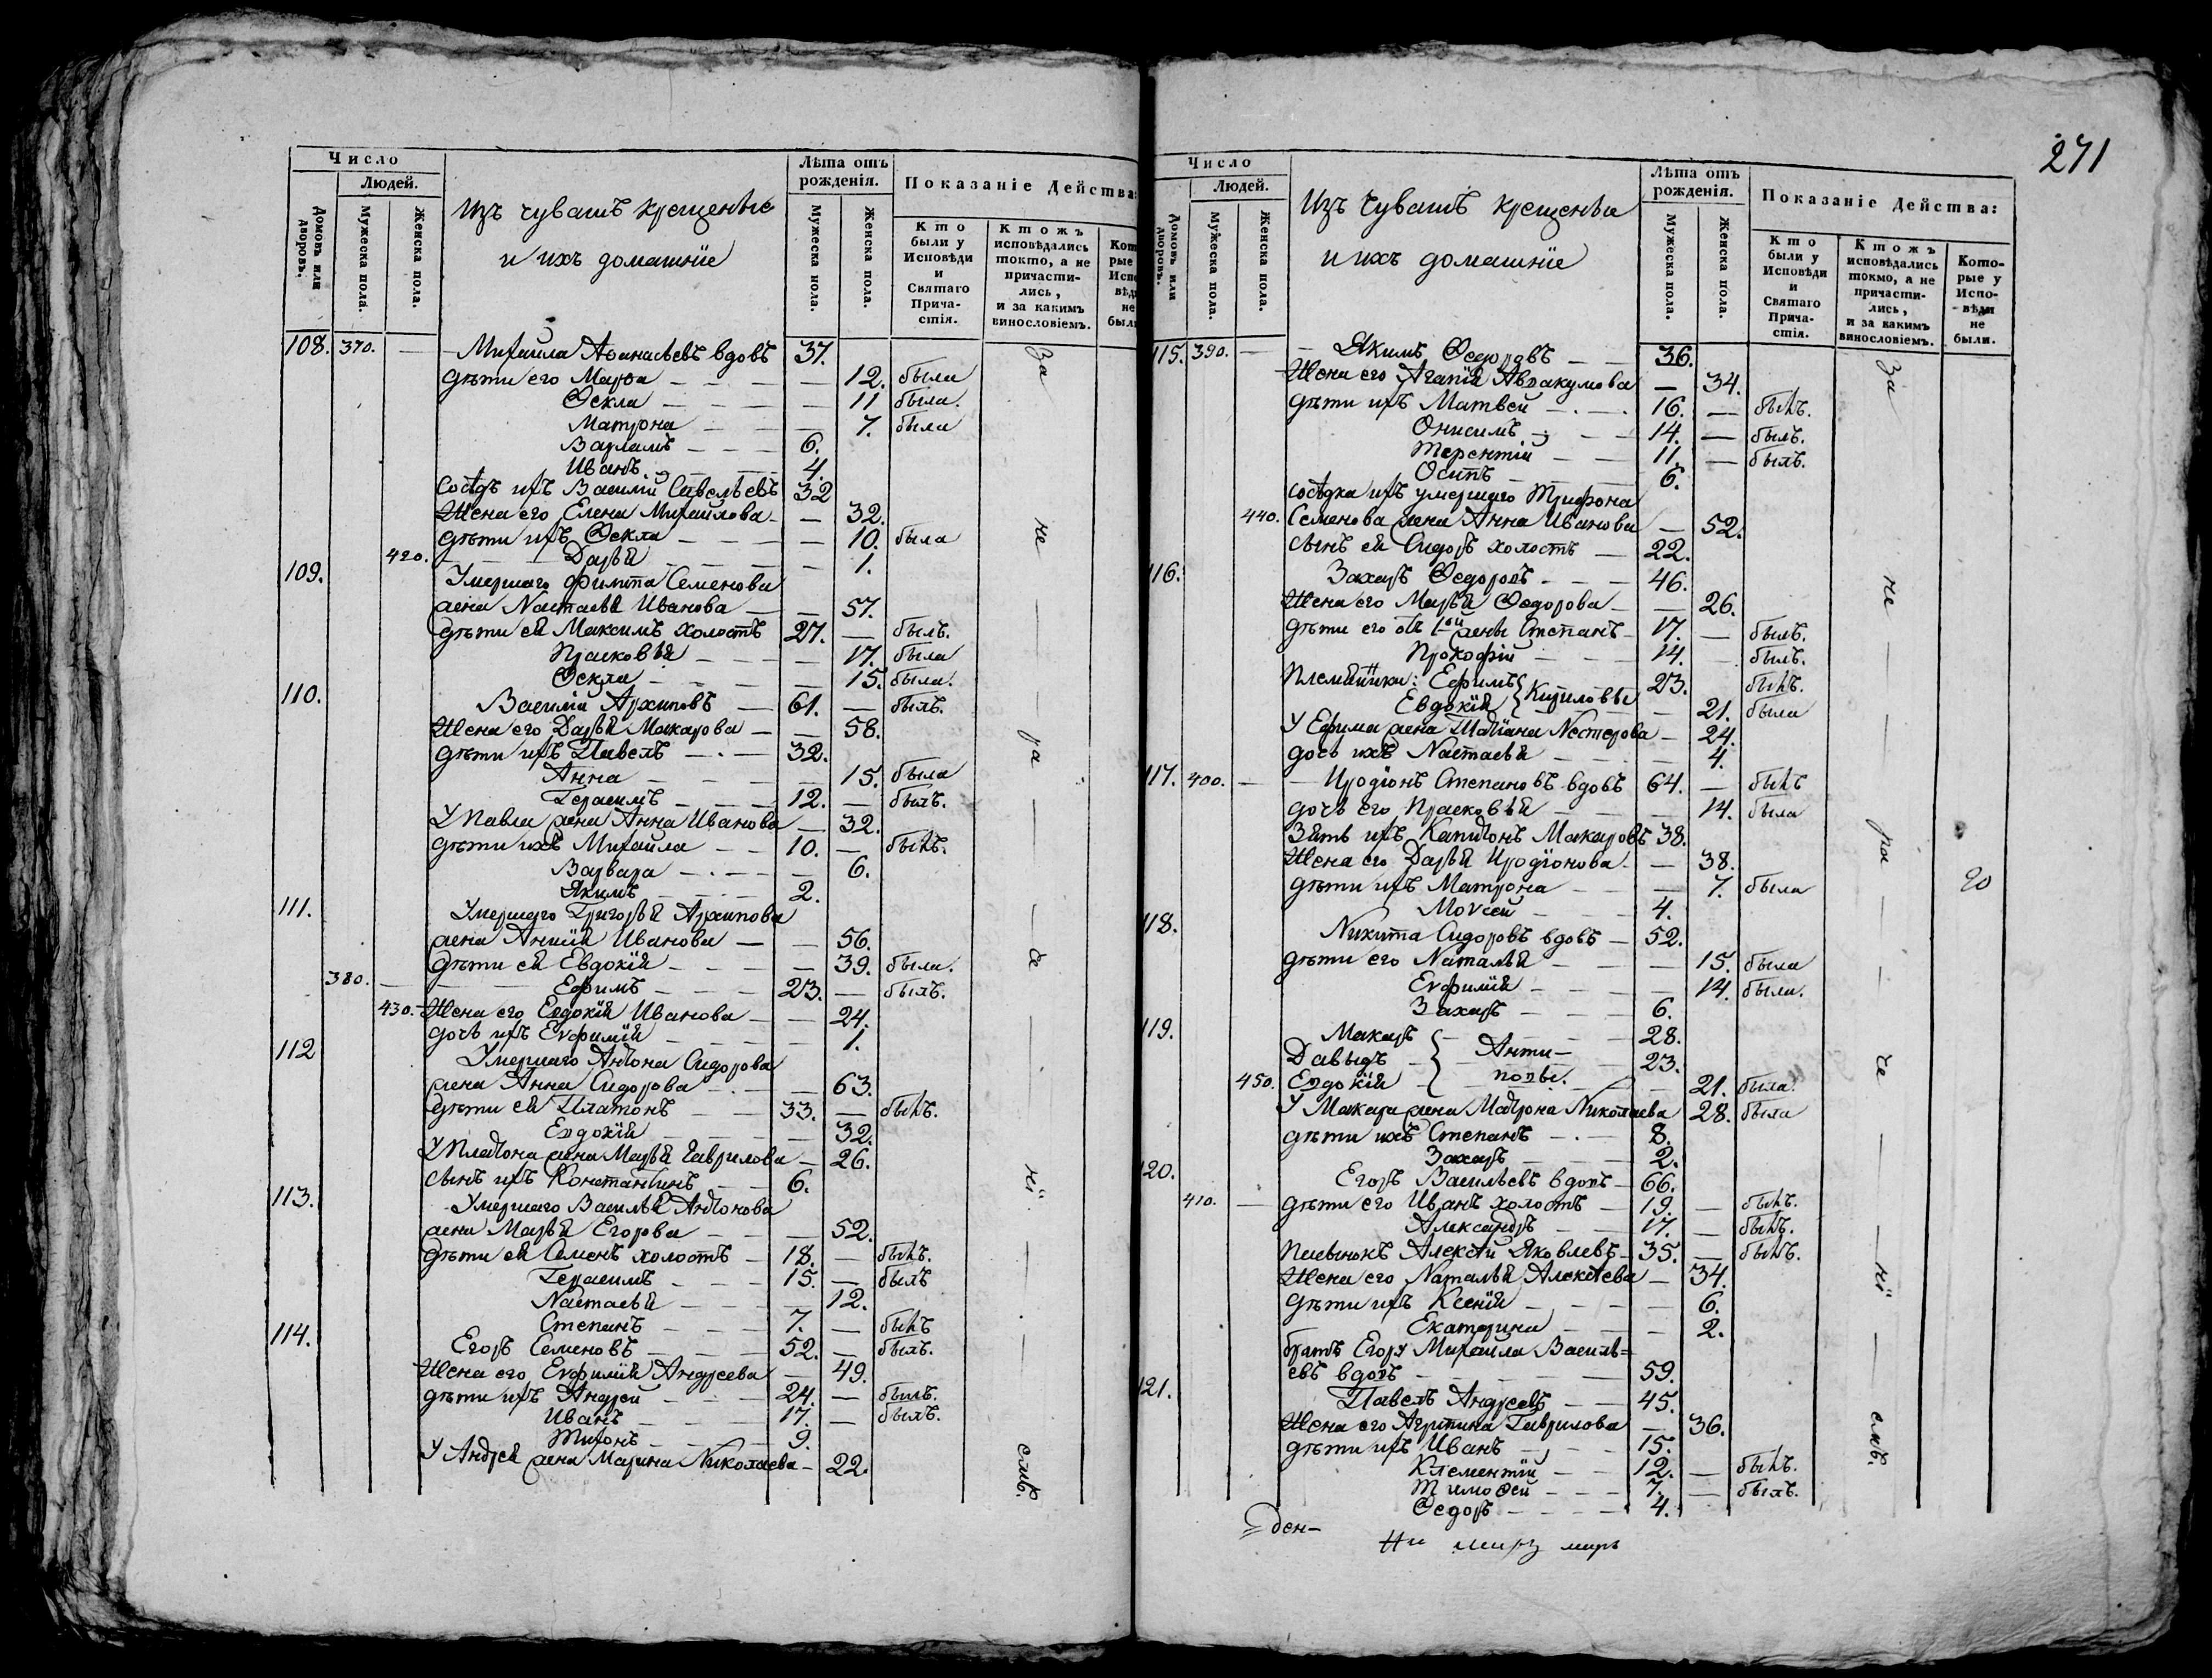 Число
Людей.
Домовъ или дворовъ.
Мужеска пола.
Женска пола.
Изъ чувашъ крещеные
и ихъ домашніе
Лѣта отъ рожденія.
Мужеска пола.
Женска пола.
Показаніе Действа:
Кто были у Исповѣди и Святаго Причастія.
Ктожъ исповѣдались токмо, а не причастились, и за какимъ винословіемъ.
108. 370. — Михаила Аѳанасьевъ вдовъ 37.
дѣти его Марѳа — 12. была
Ѳекла — 11 была.
Матрона — 7. была
Варламъ — 6.
Иванъ — 4.
Сосѣдъ ихъ Василій Савельевъ 32
Жена его Елена Михайлова — 32.
дѣти ихъ Ѳекла — 10. была
420. Дарья — 1.
109. Умершаго Филиппа Семенова
жена Настасья Иванова — 57.
дѣти ея Максимъ холостъ 27. — былъ.
Прасковья — 17. была
Ѳекла — 15. была.
110. Василій Архиповъ — 61. — былъ.
Жена его Дарья Макарова — 58.
дѣти ихъ Павелъ — 32.
Анна — 15. была
Герасимъ — 12. — былъ.
У Павла жена Анна Иванова — 32.
дѣти ихъ Михаила — 10. — былъ.
Варвара — 6.
Якимъ — 2.
111. Умершаго Григорья Архипова
жена Анисія Иванова — 56.
дѣти ея Евдокія — 39. была.
380. Ефимъ — 23. — былъ.
430. Жена его Евдокія Иванова — 24.
дочь ихъ Евфимія — 1.
112 Умершаго Антона Сидорова
жена Анна Сидорова — 63.
дѣти ея Платонъ — 33. — былъ.
Евдокія — 32.
У Платона жена Марья Гаврилова — 26.
сынъ ихъ Константинъ — 6.
113. Умершаго Василья Антонова
жена Марья Егорова — 52.
дѣти ея Семенъ холостъ — 18. — былъ.
Герасимъ — 15. — былъ
Настасья — 12.
Степанъ — 7. — былъ
114. Егоръ Семеновъ — 52. — былъ.
Жена его Евфимія Андреева — 49.
дѣти ихъ Андрей — 24. — былъ.
Иванъ — 17. — былъ.
Тихонъ — 9.
У Андрея жена Марина Николаева — 22.
За не ра че ні емъ.
271
Число
Людей.
Домовъ или дворовъ.
Мужеска пола.
Женска пола.
Изъ Чувашъ крещеные
и ихъ домашніе
Лѣта отъ рожденія.
Мужеска пола.
Женска пола.
Показаніе Действа:
Кто были у Исповѣди и Святаго Причастія.
Ктожъ исповѣдались токмо, а не причастились, и за какимъ винословіемъ.
Которые у Исповѣди не были.
115. 390. — Якимъ Ѳедоровъ — 36.
Жена его Агапія Авракумова — 34.
дѣти ихъ Матвей — 16. — былъ.
Онисимъ — 14. — былъ.
Терентій — 11. — былъ.
Осипъ — 6.
сосѣдка ихъ умершаго Трифона
440. Семенова жена Анна Иванова — 52.
сынъ ея Сидоръ холостъ — 22.
116. Захаръ Ѳедоровъ — 46.
Жена его Марья Ѳедорова — 26.
дѣти его отъ 1ой жены Степанъ 17. — былъ.
Прокофій — 14. — былъ.
Племянники: Ефимъ 23. былъ.
Евдокія } Кириловы — 21. была
У Ефима жена Татіана Нестерова — 24.
дочь ихъ Настасья — 4.
117. 400. — Иродіонъ Степановъ вдовъ 64. — былъ
дочь его Прасковья — 14. была
Зять ихъ Капитонъ Макаровъ 38.
Жена его Дарья Иродіонова — 38.
дѣти ихъ Матрона — 7. была
Моѵсей — 4.
118. Никита Сидоровъ вдовъ — 52.
дѣти его Наталья — 15. была
Евфимія — 14. была.
Захаръ — 6.
119. Макаръ — 28.
Давыдъ } Анти- 23.
450. Евдокія } повы. — 21. была.
У Макара жена Матрона Николаева 28. была
дѣти ихъ Степанъ — 8.
Захаръ — 2.
120. Егоръ Васильевъ вдовъ — 66.
410. — дѣти его Иванъ холостъ — 19. — былъ.
Александръ — 17. — былъ.
Алексѣй Яковлевъ — 35. — былъ.
Жена его Наталья Алексѣева — 34.
дѣти ихъ Ксенія — 6.
Екатерина — 2.
братъ Егору Михаила Василь=
евъ вдовъ — 59.
121. Павелъ Андреевъ — 45.
Жена его Агрипина Гаврилова — 36.
дѣти ихъ Иванъ — 15.
Клементій — 12. — былъ.
Тимоѳей — 7. — былъ.
Ѳедоръ — 4.
За не ра че ні емъ.
20